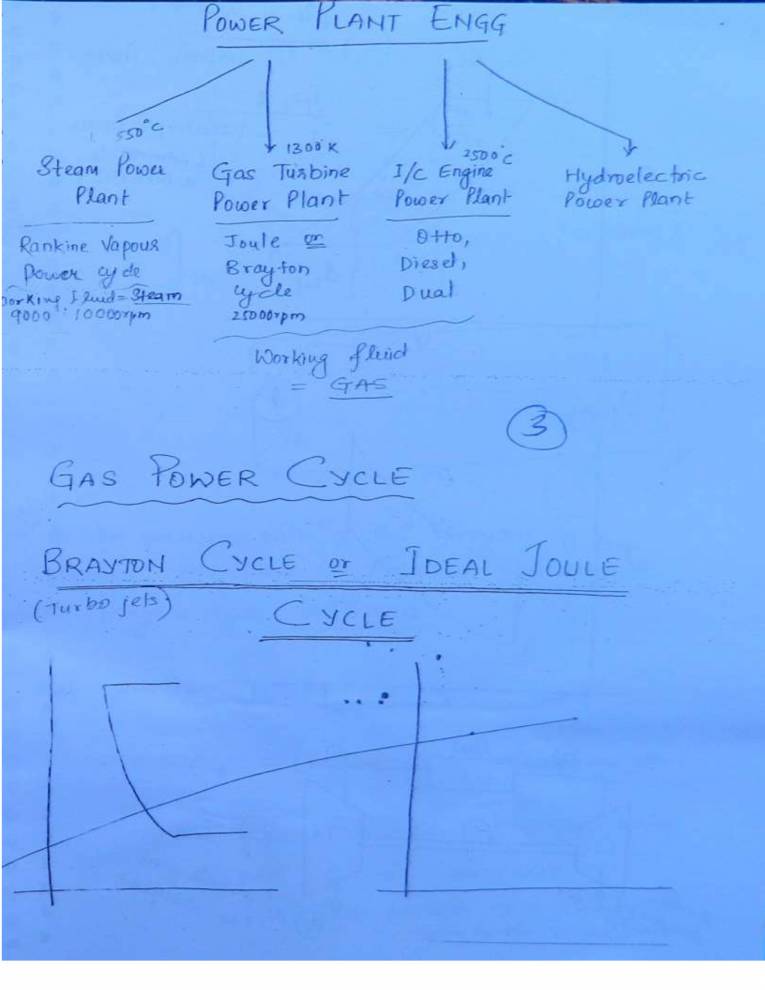 POWER PLANT ENGG
550°C
Steam Power
Plant
Rankine Vapour
Power cycle
Working Fluid = Steam
9000 10000rpm
1300°K
Gas Turbine
Power Plant
Joule or
Brayton
cycle
25000rpm
2500°C
I/C Engine
Power Plant
Otto,
Diesel,
Dual
Hydroelectric
Power Plant
Working fluid
= GAS
3
GAS POWER CYCLE
BRAYTON CYCLE or IDEAL JOULE
(Turbo jets)
CYCLE